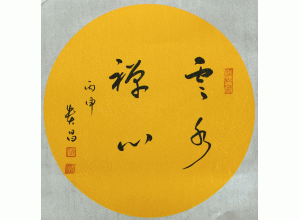 云水
禅心
丙申